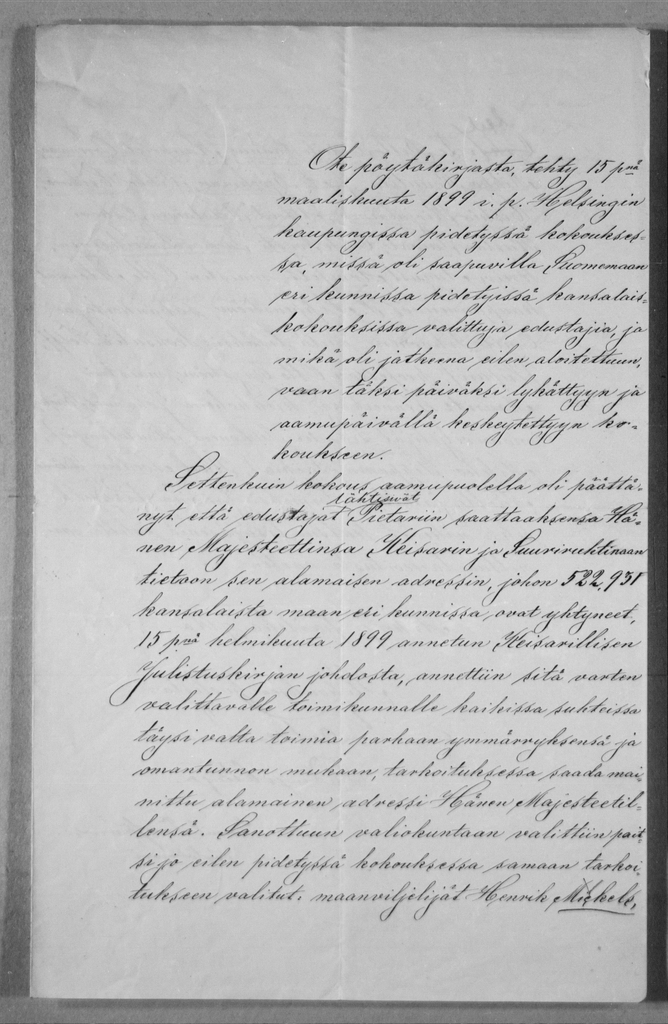 Ote pöytäkirjasta, tehty 15 pnä
maaliskuuta 1899 i. p. Helsingin
kaupungissa pidetyssä kokoukses-
sa, missä oli saapuvilla, Suomenmaan
eri kunnissa pidetyissä kansalais-
kokouksissa valittuja edustajia, ja
mikä oli jatkona eilen aloitettuun,
vaan täksi päiväksi lykättyyn ja
aamupäivällä keskeytettyyn ko-
koukseen.
Settenkuin kokous aamupuolella oli päättä-
lähtisivät
nyt, että edustajat Pietariin saattaaksensa Hä-
nen Majesteettinsa Keisarin ja Suuriruhtinaan
tietoon sen alamaisen adressin, johon 522,931
kansalaista maan eri kunnissa, ovat yhtyneet,
15 pnä helmikuuta 1899 annetun Keisarillisen
Julistuskirjan johdosta, annettiin sitä varten
valittavalle toimikunnalle kaikissa suhteissa
täysi valta toimia parhaan ymmärryksensä ja
omantunnon mukaan, tarkoituksessa saada mai-
nittu alamainen adressi Hänen Majesteetil-
lensä. Sanottuun valiokuntaan valittiin pait-
si jo eilen pidetyssä kokouksessa samaan tarkoi-
tukseen valitut: maanviljelijät Henrik Mickels,